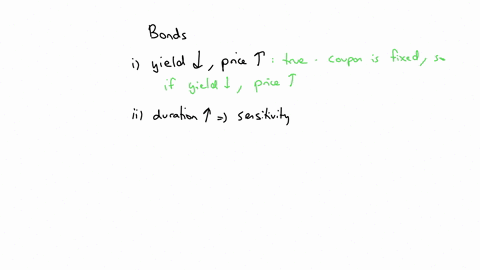 Bonds
i) yield ↓, price ↑ : true. coupon is fixed, so
if yield ↓, price ↑
ii) duration ↑ => sensitivity